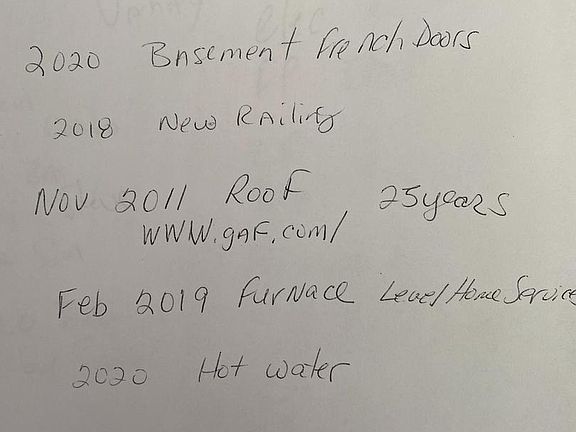 2020 Basement French Doors
2018 New Railing
Nov 2011 Roof 25 years
www.gaf.com/
Feb 2019 Furnace Level Home Service
2020 Hot water